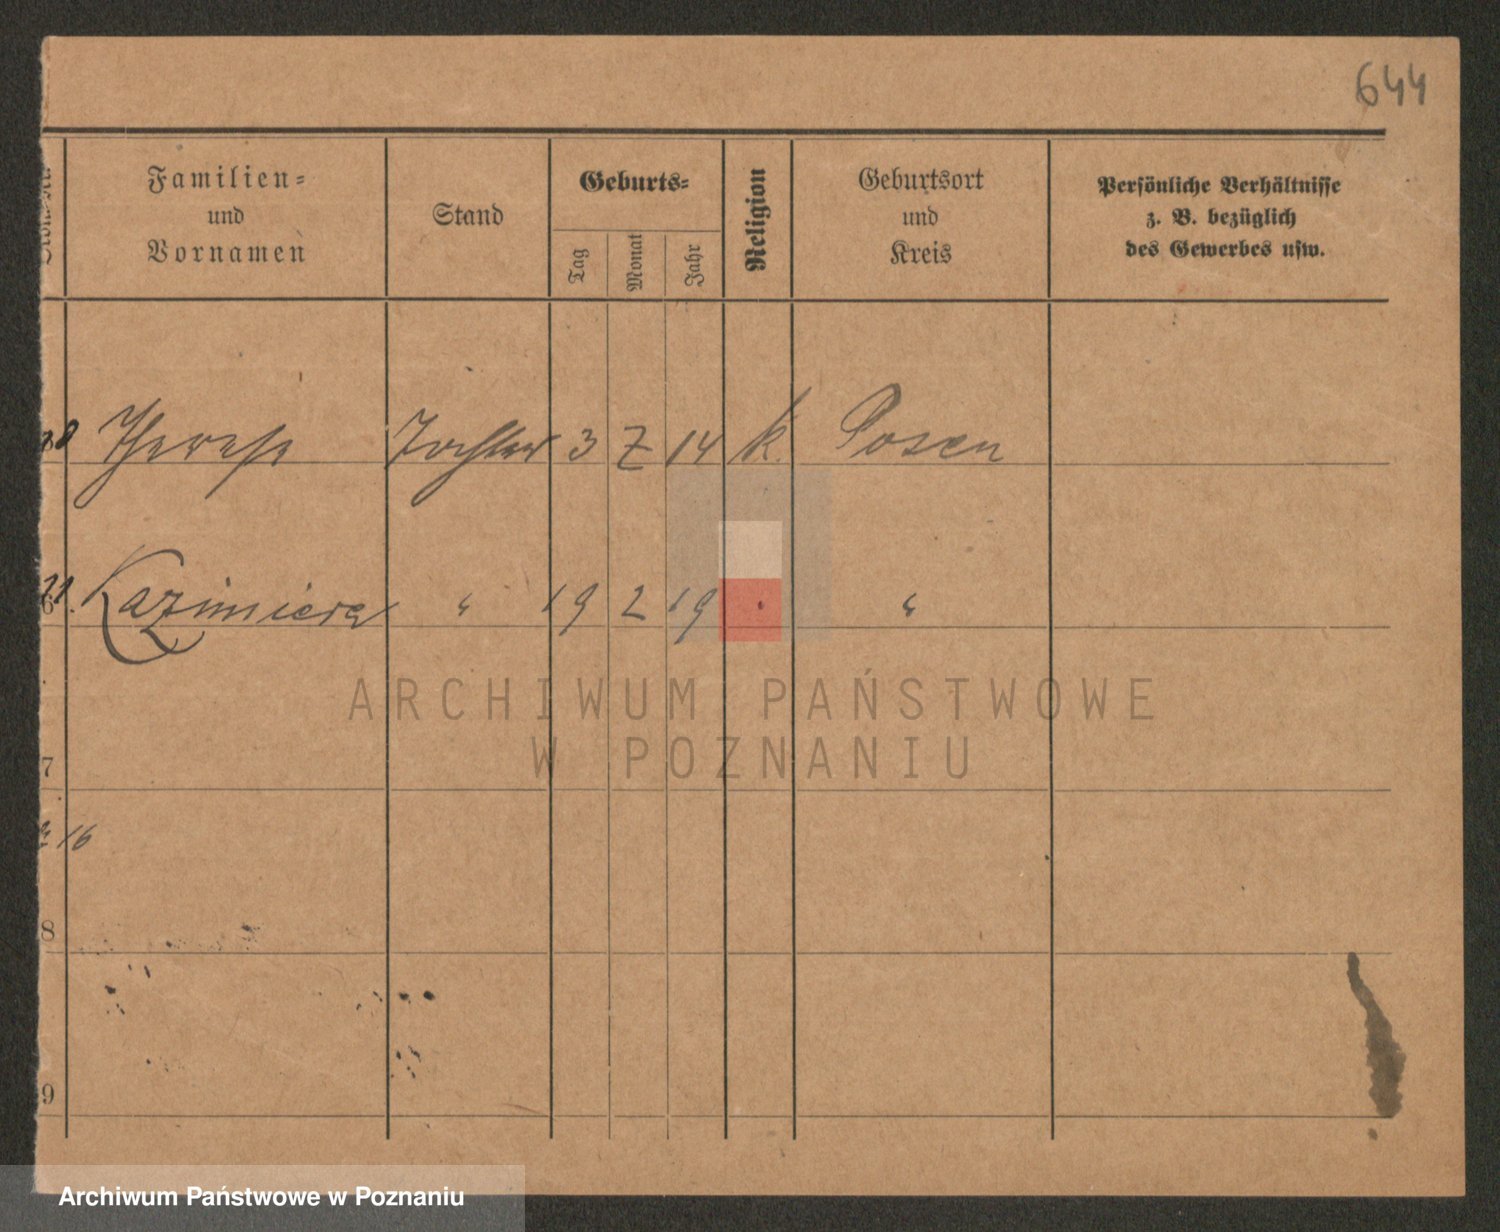 644
Familien=
und
Vornamen
Stand
Geburts=
Tag
Monat
Jahr
Religion
Geburtsort
und
Kreis
Persönliche Verhältnisse
z. B. bezüglich
des Gewerbes usw.
Therese Tochter 3 2 14 k. Posen
6 Kazimiera " 19 2 19 . "
ARCHIWUM PAŃSTWOWE
W POZNANIU
7
16
8
9
Archiwum Państwowe w Poznaniu